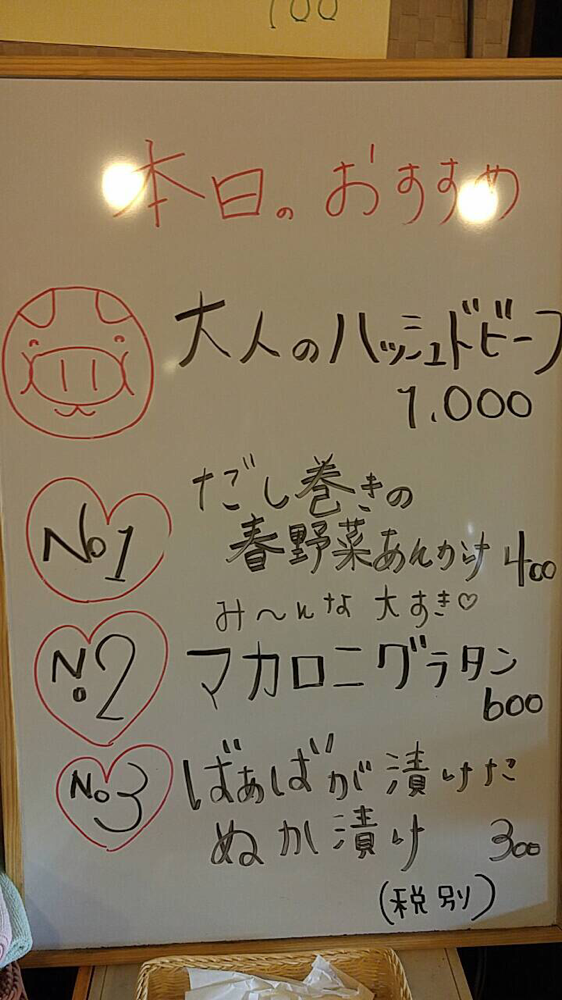 100
本日のおすすめ
大人のハッシュドビーフ
1.000
No1
だごし巻きの
春野菜あんかけ 400
み〜んな 大すき♡
No2
マカロニグラタン
600
No3
ばあばが漬けた
ぬか漬け 300
(税別)